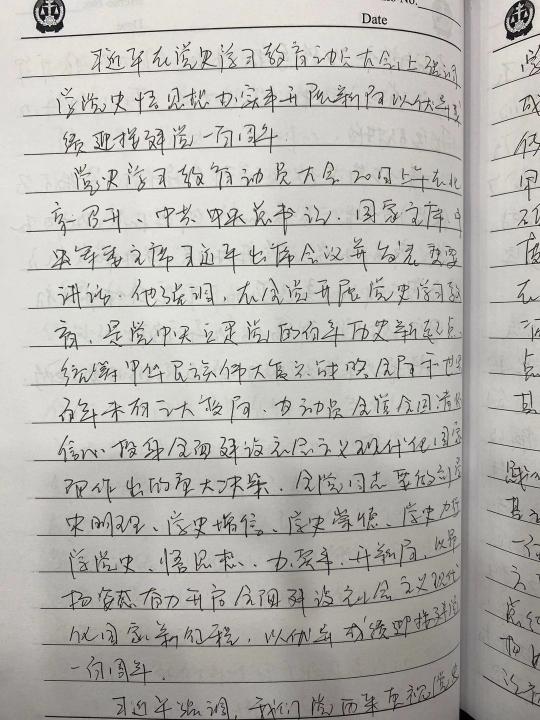 No.
Date
习近平在党史学习教育动员大会上强调
学党史悟思想办实事开新局以优异成
绩迎接建党一百周年
党史学习教育动员大会20日上午在北
京召开。中共中央总书记、国家主席、中
央军委主席习近平出席会议并发表重要
讲话。他强调,在全党开展党史学习教
育,是党中央立足党的百年历史新起点、
统筹中华民族伟大复兴战略全局和世界
百年未有之大变局、为动员全党全国满怀
信心投身全面建设社会主义现代化国家
而作出的重大决策。全党同志要做到学
史明理、学史增信、学史崇德、学史力行
学党史、悟思想、办实事、开新局,以昂
扬姿态奋力开启全面建设社会主义现代
化国家新征程,以优异成绩迎接建党
一百周年。
习近平强调,我们党历来重视党史